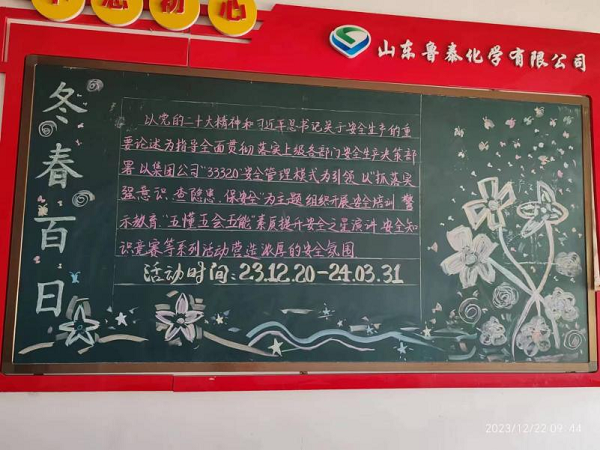 忘初心
山东鲁泰化学有限公司
冬春百日
以党的二十大精神和习近平总书记关于安全生产的重
要论述为指导全面贯彻落实上级各部门安全生产决策部
署以集团公司"33320"安全管理模式为引领以"抓落实
强意识、查隐患、保安全"为主题组织开展安全培训、警
示教育"五懂五会五能"素质提升安全之星演讲、安全知
识竞赛等系列活动营造浓厚的安全氛围
活动时间:23.12.20-24.03.31
2023/12/22 09:44